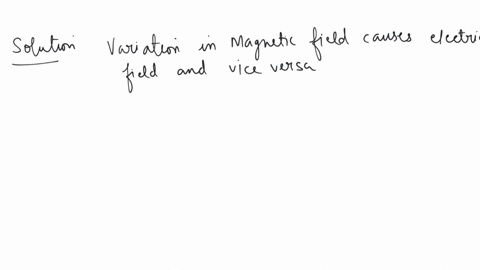 Solution Variation in Magnetic field causes electri
field and vice versa